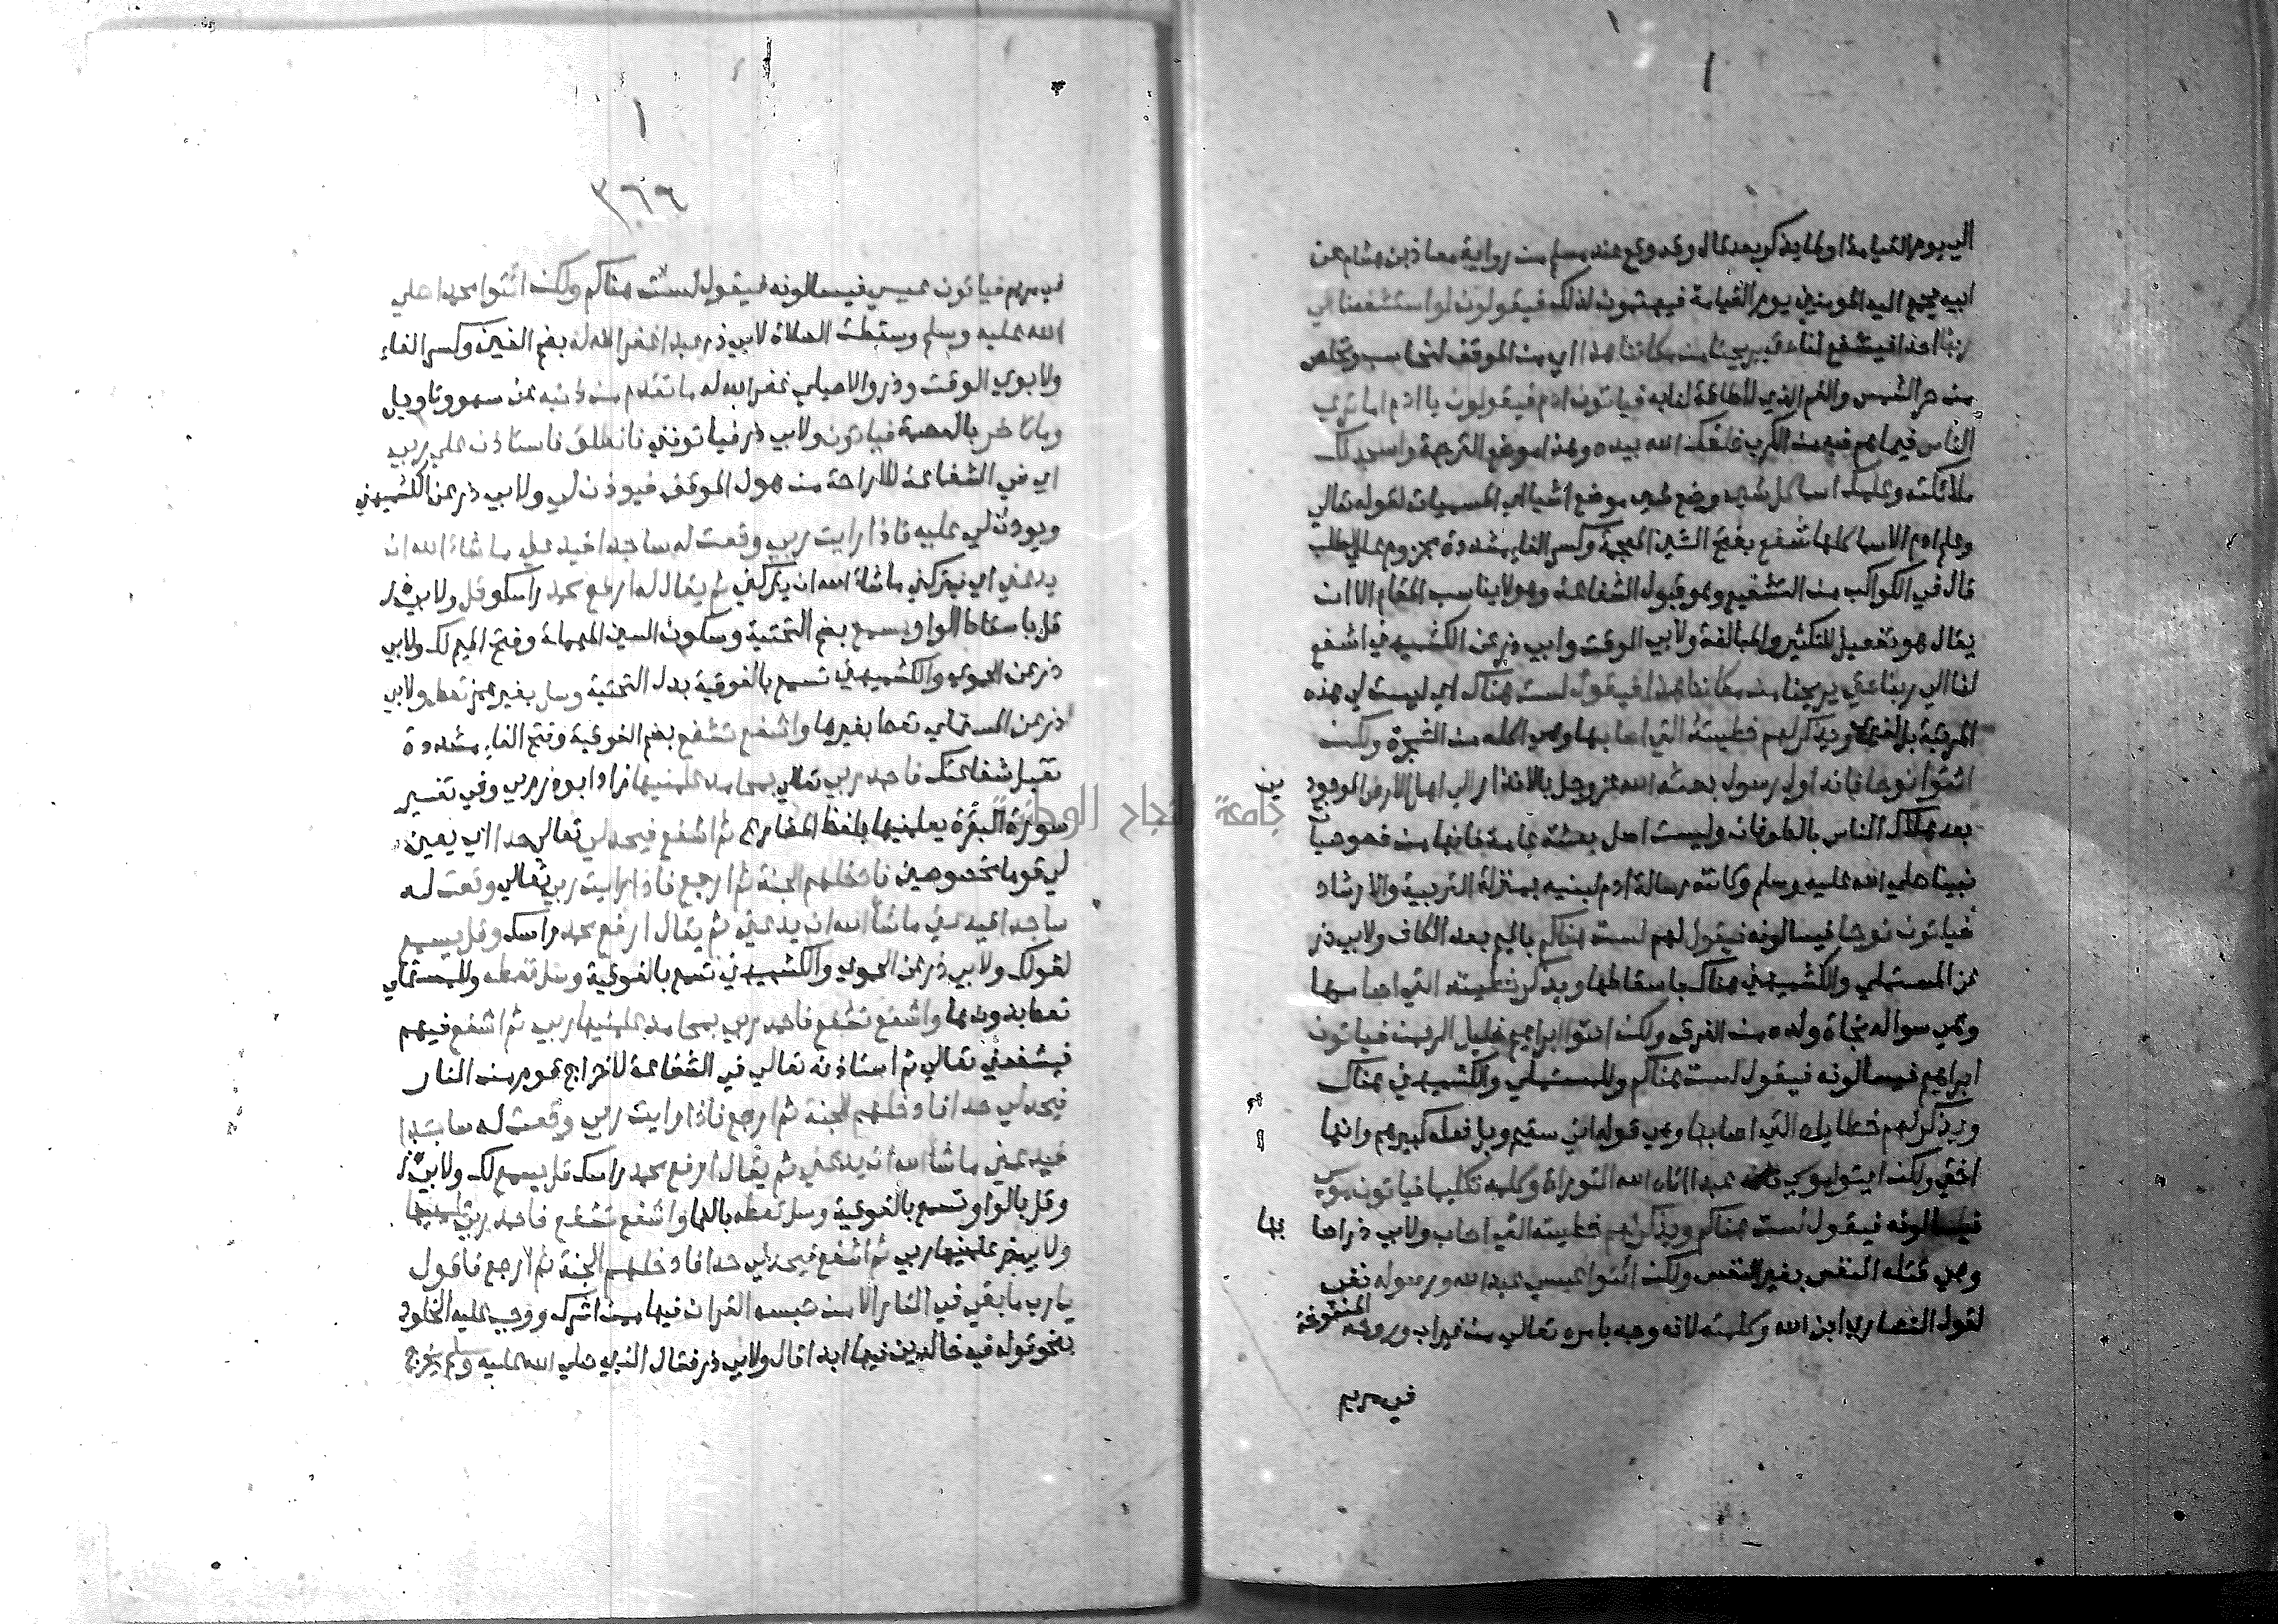 الي يوم القيامة اولما يذكر بعد قال وقد وقع عند مسلم من رواية معاذ بن هشام عن
ابيه يجمع الله المومنين يوم القيامة فيهتمون لذلك فيقولون لو استشفعنا الي
ربنا احدا فيشفع لنا حتي يريحنا من مكاننا هذا اي من الموقف لنحاسب ونخلص
من حر الشمس والغم الذي لا طاقة لنا به فياتون ادم فيقولون يا ادم اما تري
الناس فيما هم فيه من الكرب خلقك الله بيده وهذا موضع الترجمة واسجد لك
ملائكته وعلمك اسما كل شي وضع شي موضع اشيا اي المسميات لقوله تعالي
وعلم ادم الاسما كلها شفع بفتح الشين المعجمة وكسر الفاء مشددة مجزوم علي الطلب
قال في الكواكب من التشفيع وهو قبول الشفاعة وهو لا يناسب المقام الا ان
يقال هو تفعيل للتكثير والمبالغة ولابي الوقت وابي ذر عن الكشميهني اشفع
لنا الي ربنا حتي يريحنا من مكاننا هذا فيقول لست هناك اي ليست لي هذه
المرتبة بل لغيري ويذكر لهم خطيئته التي اصابها وهي اكله من الشجرة ولكن
ائتوا نوحا فانه اول رسول بعثه الله عز وجل بالانذار الي اهل الارض الموجودين
بعد هلاك الناس بالطوفان وليست اصل بعثته عامة فانها من خصوصيات
نبينا صلي الله عليه وسلم وكانت رسالة ادم لبنيه بمنزلة التربية والارشاد
فياتون نوحا فيسالونه فيقول لهم لست هناكم بالميم بعد الكاف ولابي ذر
عن المستملي والكشميهني هناك باسقاطها ويذكر خطيئته التي اصابها
وهي سواله نجاة ولده من الغرق ولكن ائتوا ابراهيم خليل الرحمن فياتون
ابراهيم فيسالونه فيقول لست هناكم وللمستملي والكشميهني هناك
ويذكر لهم خطاياه التي اصابها وهي قوله اني سقيم وبل فعله كبيرهم وانها
اختي ولكن ايتوا موسي عبدا اتاه الله التوراة وكلمه تكليما فياتون موسي
فيسالونه فيقول لست هناكم ويذكر لهم خطيئته التي اصاب ولابي ذر اصابها
وهي قتله النفس بغير النفس ولكن ائتوا عيسي عبد الله ورسوله نفي
لقول النصاري ابن الله وكلمته لانه وجد بامره تعالي من غير اب وروحه المنفوخة
في مريم
٣٦٦
في مريم فياتون عيسي فيسالونه فيقول لست هناكم ولكن ائتوا محمدا صلي
الله عليه وسلم وسقطت الصلاة لابي ذر عبدا غفر الله له بضم الغين وكسر الفاء
ولابوي الوقت وذر والاصيلي غفر الله له ما تقدم من ذنبه عن سهو وتاويل
وما تاخر بالعصمة فياتون ولابي ذر فياتونني فانطلق فاستاذن علي ربي
اي في الشفاعة للاراحة من هول الموقف فيوذن لي ولابي ذر عن الكشميهني
ويوذن لي عليه فاذا رايت ربي وقعت له ساجدا فيدعني ما شاء الله ان
يدعني اي يتركني ما شاء الله ان يتركني ثم يقال له ارفع محمد راسك وقل ولابي ذر
قل باسقاط الواو يسمع بضم التحتية وسكون السين المهملة وفتح الميم لك ولابي
ذر عن الحموي والكشميهني تسمع بالفوقية بدل التحتية وسل بغير همز تعطه ولابي
ذر عن المستملي تعط بغيرها واشفع تشفع بضم الفوقية وفتح الفاء مشددة
تقبل شفاعتك فاحمد ربي تعالي بمحامد علمنيها زاد ابو ذر ربي وفي تفسير
سورة البقرة يعلمنيها بلفظ المضارع ثم اشفع فيحد لي تعالي حدا اي يعين
لي قوما مخصوصين فادخلهم الجنة ثم ارجع فاذا رايت ربي تعالي وقعت له
ساجدا فيدعني ما شا الله ان يدعني ثم يقال ارفع محمد راسك وقل يسمع
لقولك ولابي ذر عن الحموي والكشميهني تسمع بالفوقية وسل تعطه وللمستملي
تعط بدونها واشفع تشفع فاحمد ربي بمحامد علمنيها ربي ثم اشفع فيهم
فيشفعني تعالي ثم استاذنه تعالي في الشفاعة لاخراج قوم من النار
فيحد لي حدا فادخلهم الجنة ثم ارجع فاذا رايت ربي وقعت له ساجدا
فيدعني ما شا الله ان يدعني ثم يقال ارفع محمد راسك قل يسمع لك ولابي ذر
وقل بالواو تسمع بالفوقية وسل تعطه بالها واشفع تشفع فاحمد ربي
ولابي ذر علمنيها ربي ثم اشفع فيحد لي حدا فادخلهم الجنة ثم ارجع فاقول
يارب ما بقي في النار الا من حبسه القران فيها ممن اشرك ووجب عليه الخلود
بنحو قوله فيه خالدين فيها ابدا قال ولابي ذر فقال النبي صلي الله عليه وسلم يخرج
جامعة النجاح الوطنية